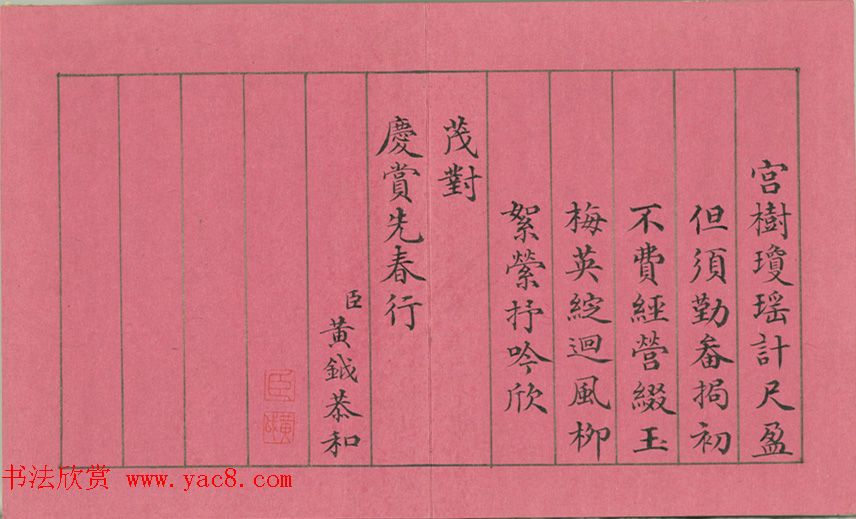 宮樹瓊瑶計尺盈
但須勤畚挶初
不費經營綴玉
梅英綻迴風柳
絮縈抒吟欣
茂對
慶賞先春行
臣黃鉞恭和
臣
黃
书法欣赏 www.yac8.com